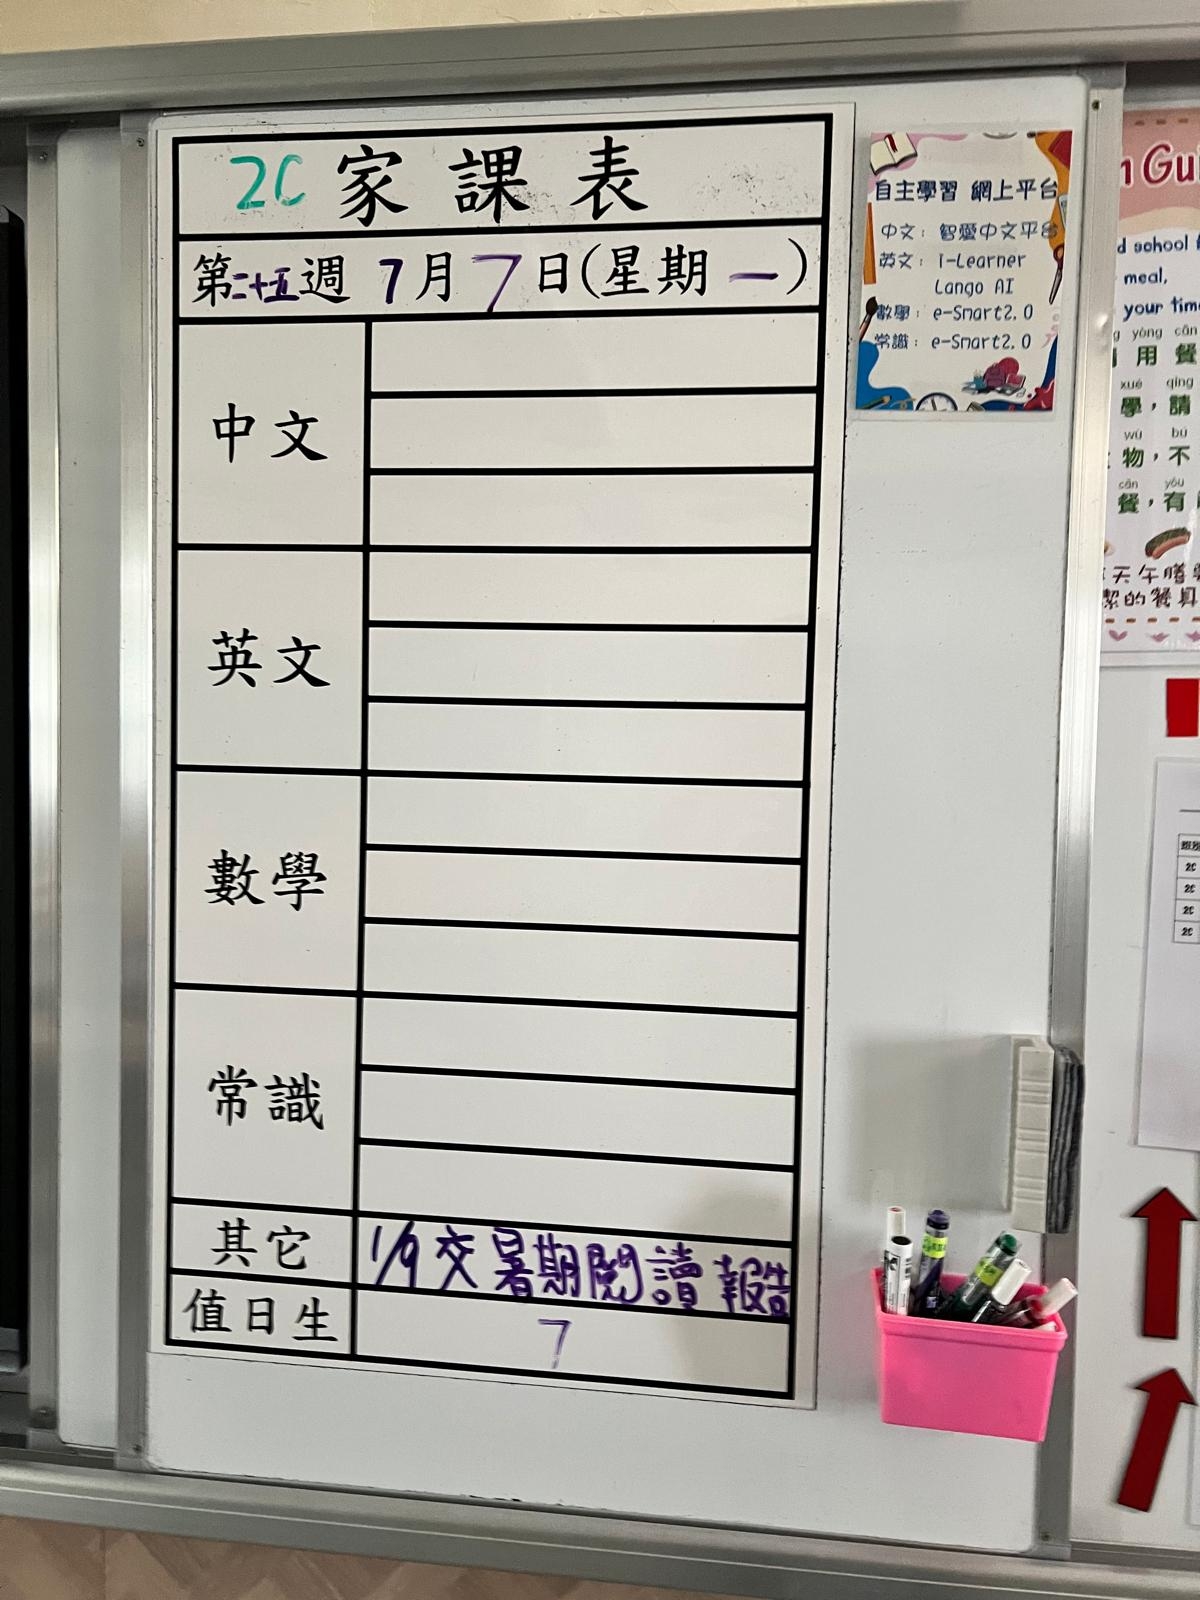 2C 家課表
第二十五週 7月7日(星期一)
中文
英文
數學
常識
其它 1/9 交暑期閱讀報告
值日生 7
自主學習 網上平台
中文：智愛中文平台
英文：i-Learner
Lango AI
數學：e-Smart2.0
常識：e-Smart2.0
Gui
d school
meal,
your time
yòng cān
用餐
xué qǐng
學，請
wù bù
物，不
cān yǒu
餐，有
天午膳
潔的餐具
2C
2C
2C
2C